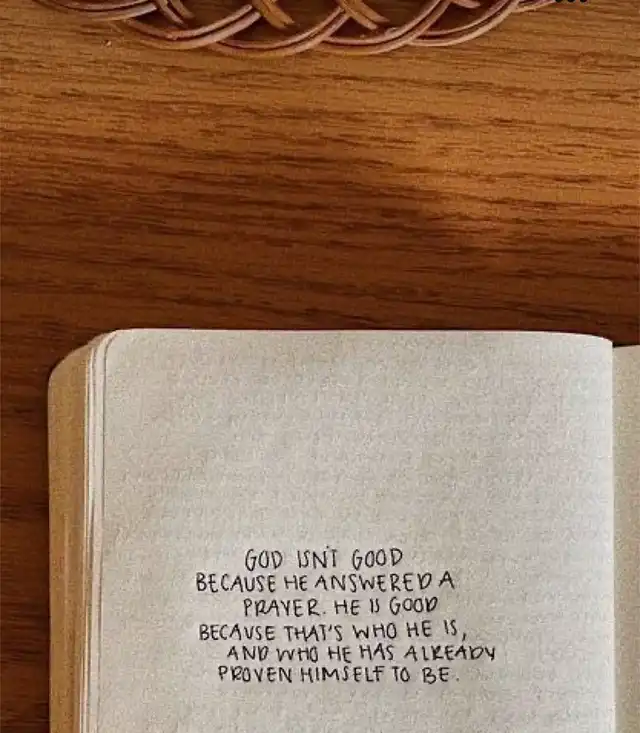 GOD ISN'T GOOD
BECAUSE HE ANSWERED A
PRAYER. HE IS GOOD
BECAUSE THAT'S WHO HE IS,
AND WHO HE HAS ALREADY
PROVEN HIMSELF TO BE.